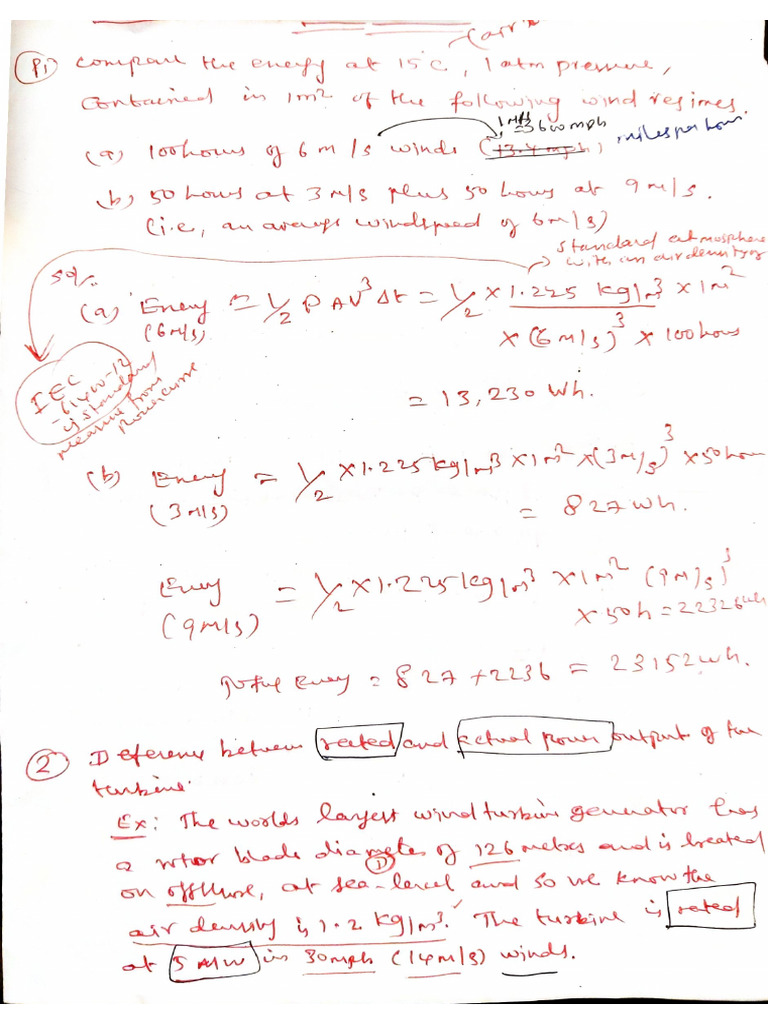 (air)
P1) compare the energy at 15°C, 1 atm pressure,
contained in 1m² of the following wind regimes.
(a) 100 hours of 6 m/s winds (13.4 mph) miles per hour
= 3600 mph
(b) 50 hours at 3 M/s plus 50 hours at 9 M/s.
(i.e, an average windspeed of 6 m/s)
standard atmosphere
with an air density of
Sol.
(a) Energy = 1/2 ρ A V³ Δt = 1/2 × 1.225 kg/m³ × 1m²
(6 M/s)
× (6 m/s)³ × 100 hours
IEC
-61400-12
is standard
measure from
Power curve
= 13,230 Wh.
(b) Energy = 1/2 × 1.225 kg/m³ × 1m² × (3 M/s)³ × 50 hours
(3 M/s)
= 827 Wh.
Energy = 1/2 × 1.225 kg/m³ × 1m² (9 M/s)³
(9 M/s)
× 50 h = 22326 Wh
Total Energy = 827 + 2236 = 23152 Wh.
(2) Deference between rated and actual power output of the
turbine.
Ex: The worlds largest wind turbine generator has
a rotor blade diameter of 126 metres and is located
(D)
on offshore, at sea-level and so we know the
air density is 1.2 kg/m³. The turbine is rated
at 5 MW in 30mph (14 M/s) winds.